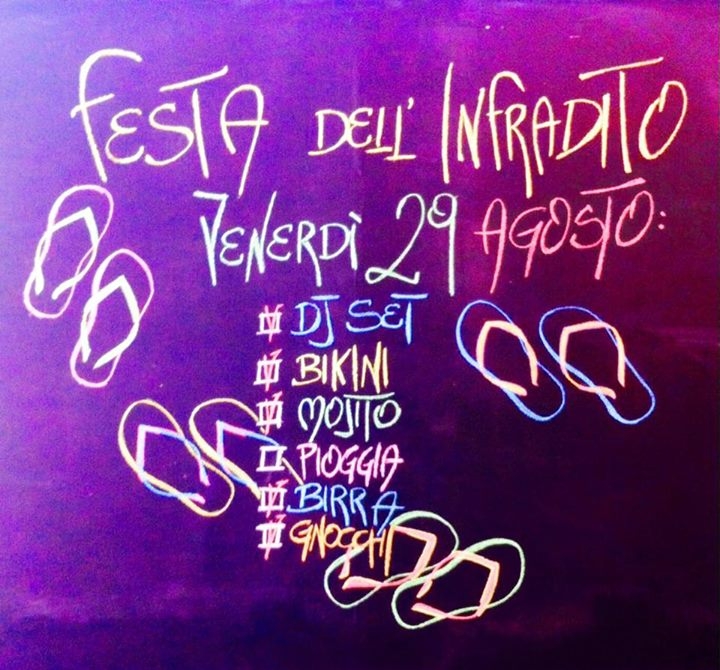 FESTA DELL' INFRADITO
VENERDÌ 29 AGOSTO:
DJ SET
BIKINI
MOJITO
PIOGGIA
BIRRA
GNOCCHI